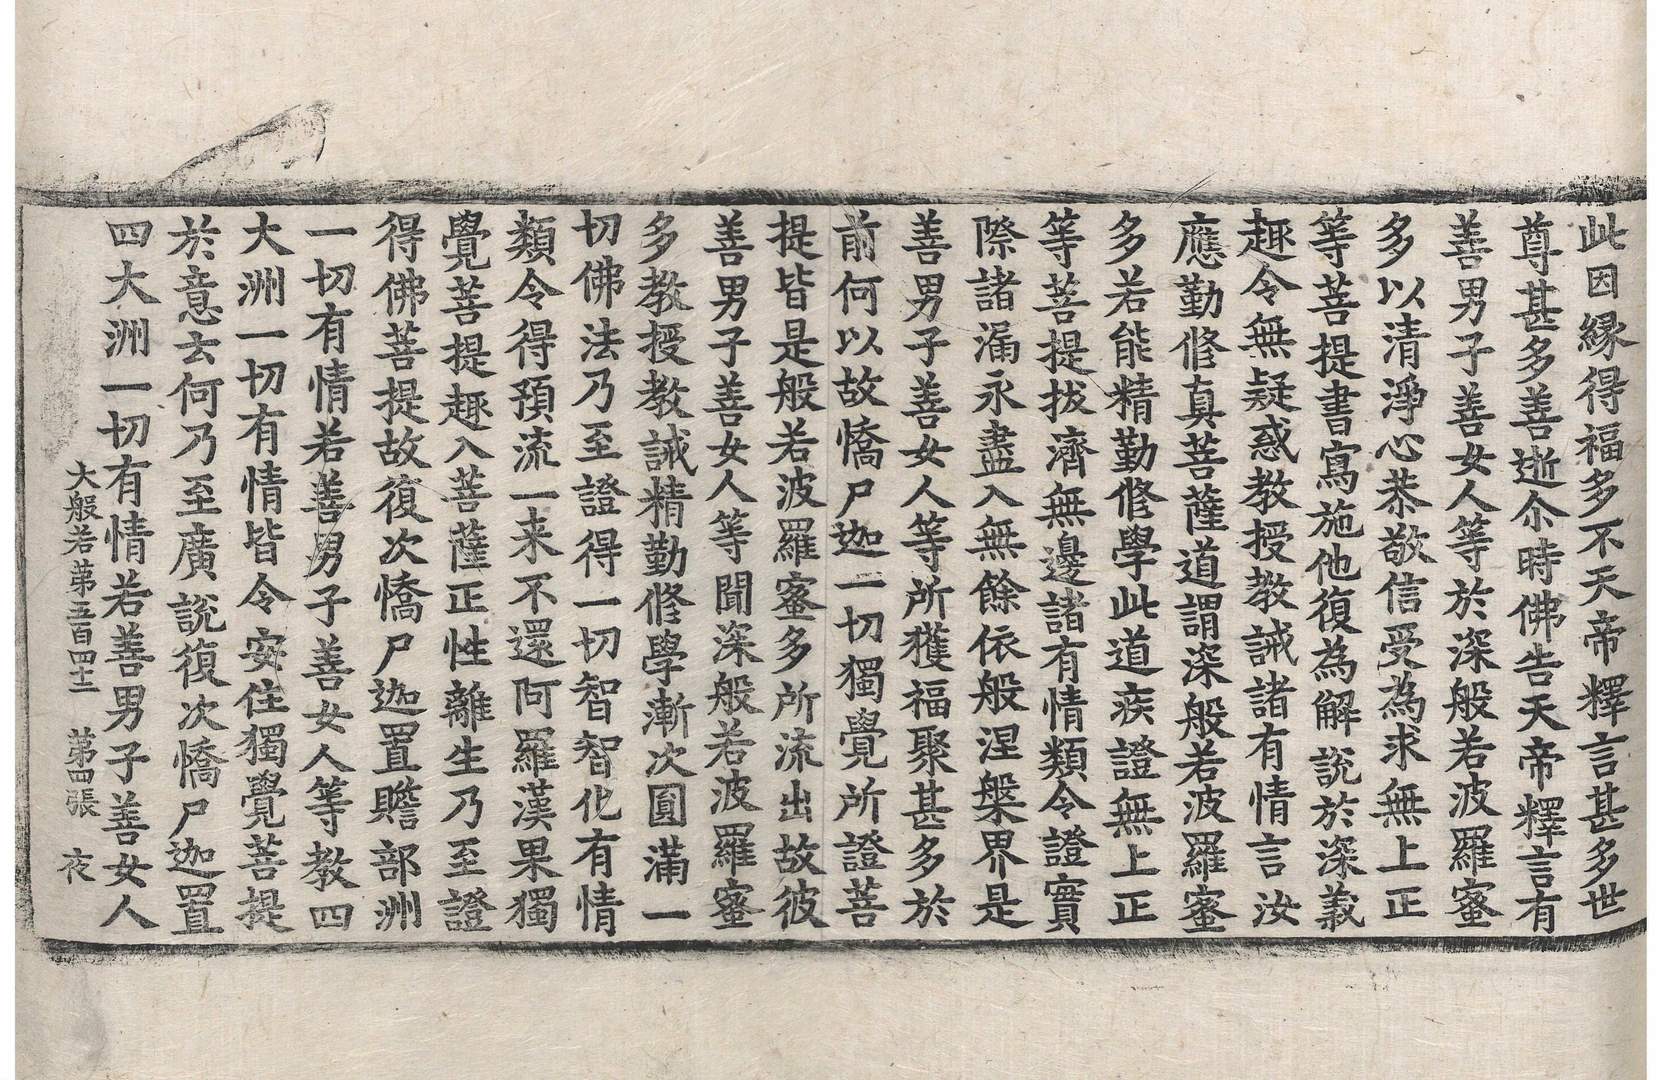 此因縁得福多不天帝釋言甚多世
尊甚多善逝尒時佛告天帝釋言有
善男子善女人等於深般若波羅蜜
多以清淨心恭敬信受為求無上正
等菩提書寫施他復為解說於深義
趣令無疑惑教授教誡諸有情言汝
應勤修真菩薩道謂深般若波羅蜜
多若能精勤修學此道疾證無上正
等菩提拔濟無邊諸有情類令證實
際諸漏永盡入無餘依般涅槃界是
善男子善女人等所獲福聚甚多於
前何以故憍尸迦一切獨覺所證菩
提皆是般若波羅蜜多所流出故彼
善男子善女人等聞深般若波羅蜜
多教授教誡精勤修學漸次圓滿一
切佛法乃至證得一切智智化有情
類令得預流一来不還阿羅漢果獨
覺菩提趣入菩薩正性離生乃至證
得佛菩提故復次憍尸迦置贍部洲
一切有情若善男子善女人等教四
大洲一切有情皆令安住獨覺菩提
於意云何乃至廣說復次憍尸迦置
四大洲一切有情若善男子善女人
大般若第五百四十二　第四張　夜